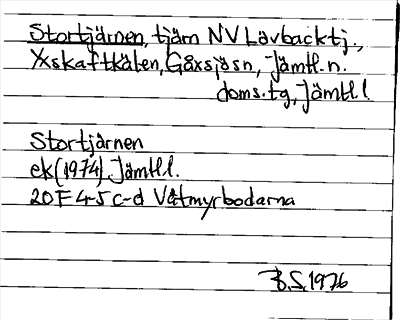 Stortjärnen, tjärn NV Lavbacktj.,
Yxskaftkälen, Gåxsjösn, Jämtl. n.
doms.tg, Jämtl. l
Stortjärnen
ek (1974) Jämtl l.
20F 4-5 c-d Våtmyrbodarna
B.S. 1976